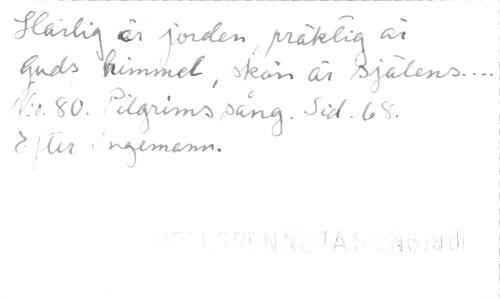 Härlig är jorden, präktig är
Guds himmel, skön är själens....
No. 80. Pilgrims sång. Sid. 68.
Efter Ingemann.